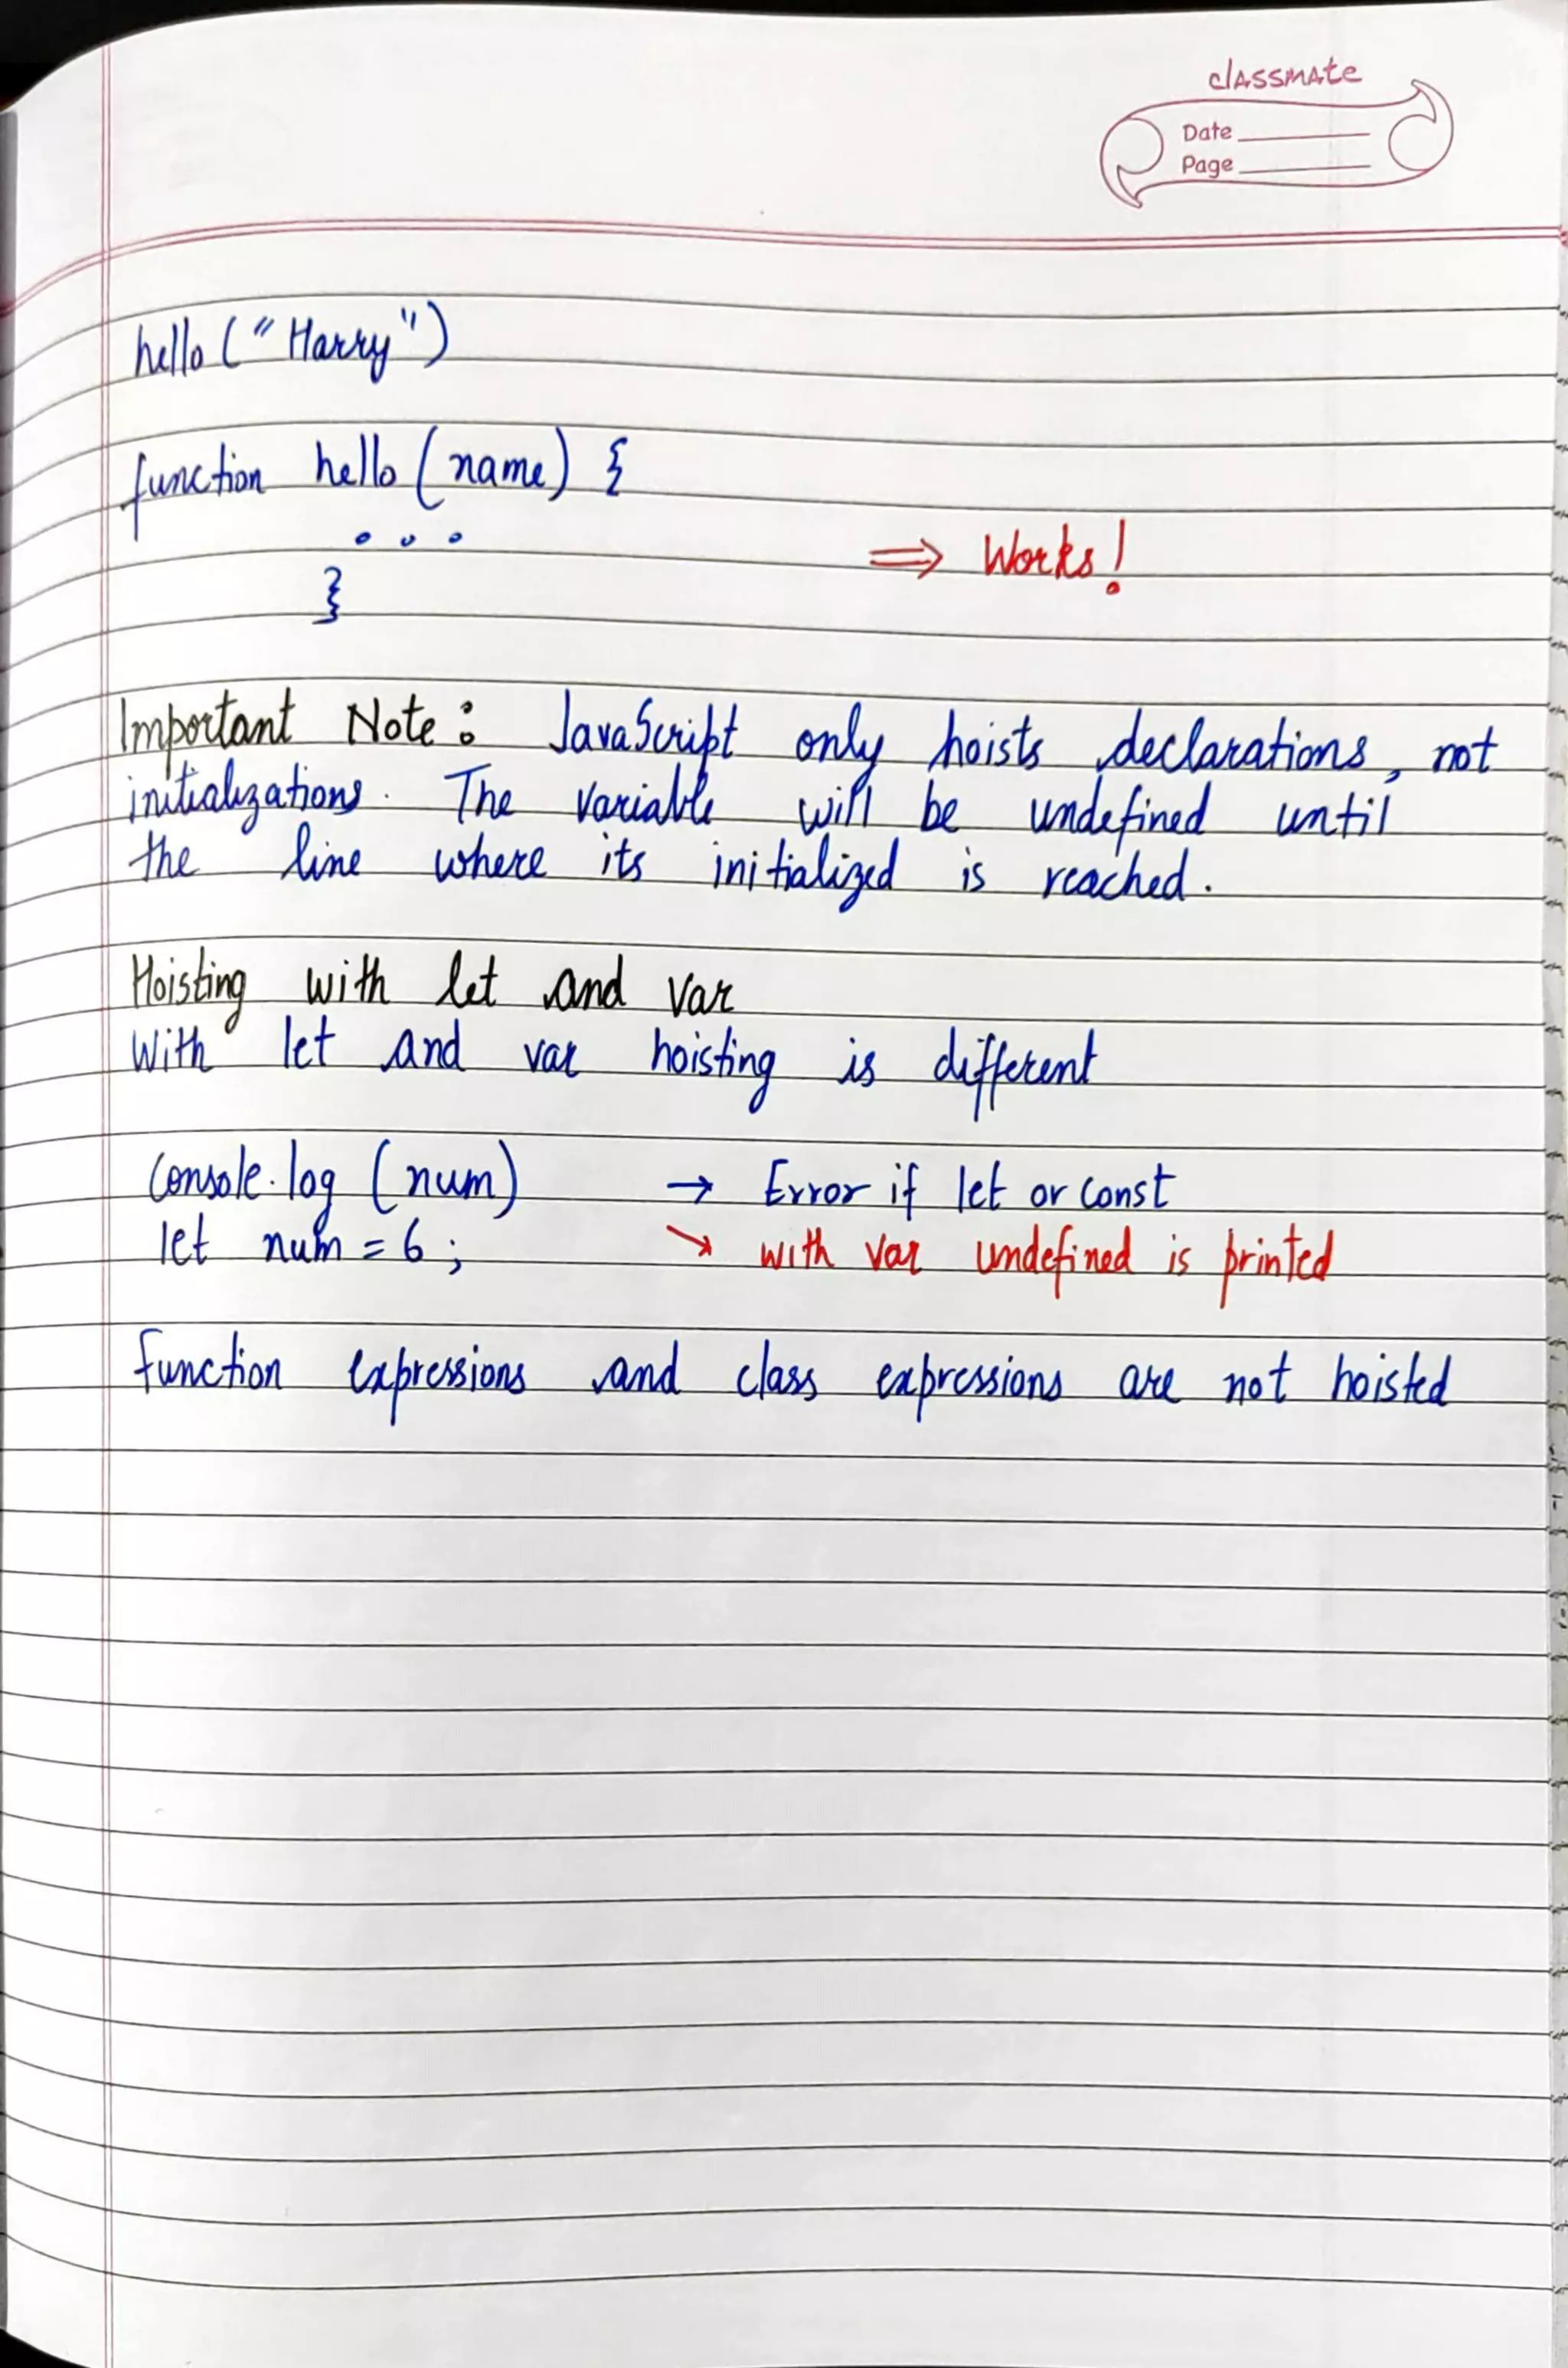 classmate
Date
Page
hello ("Harry")
function hello (name) {
...
}
⇒ Works!
Important Note: JavaScript only hoists declarations, not
initializations. The variable will be undefined until
the line where its initialized is reached.
Hoisting with let and var
With let and var hoisting is different
Console.log (num) → Error if let or const
let num = 6 ; ↘ with var undefined is printed
Function expressions and class expressions are not hoisted